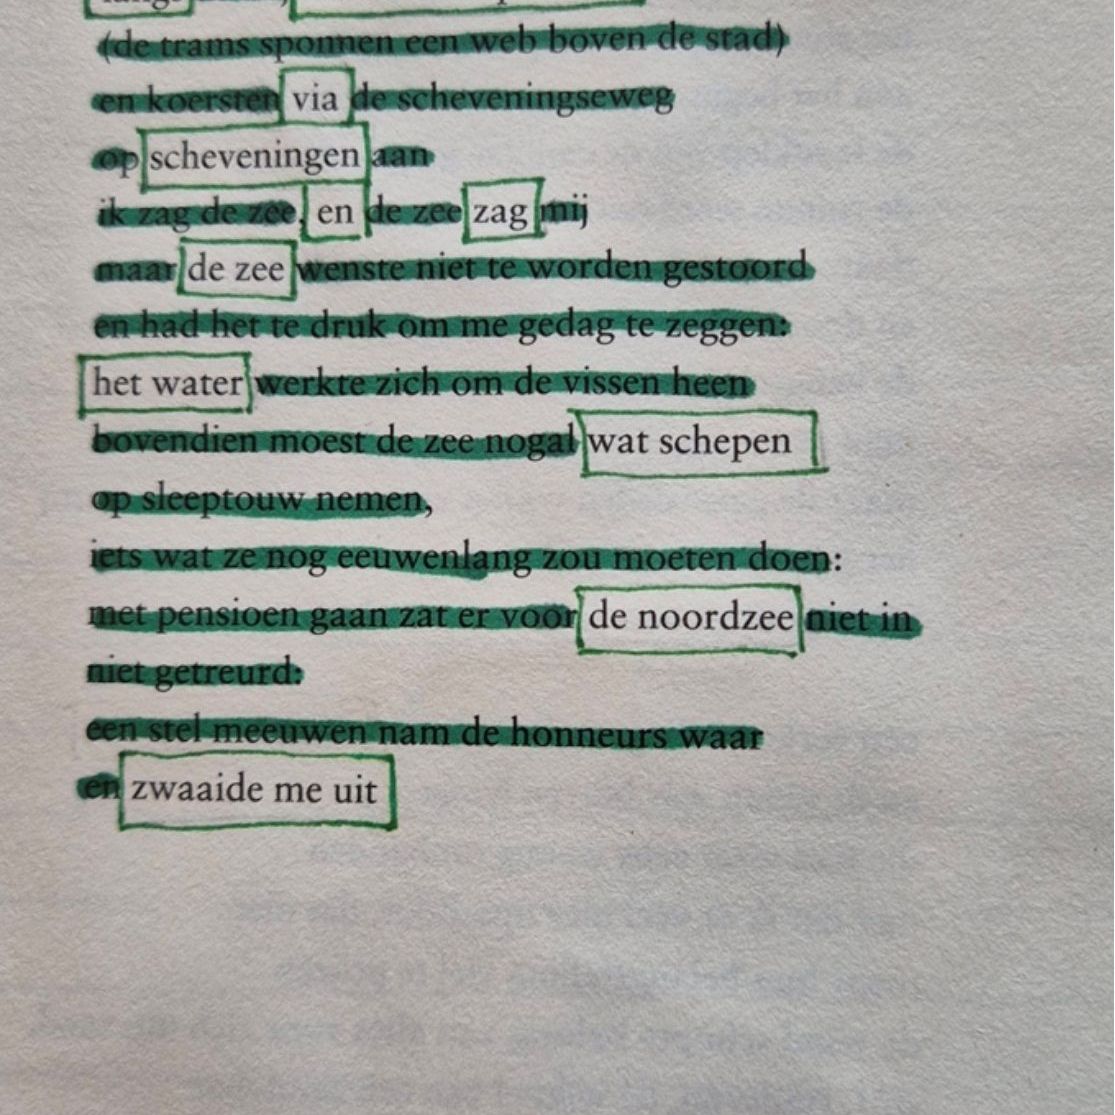 (de trams sponnen een web boven de stad)
en koersten via de scheveningseweg
op scheveningen aan
ik zag de zee, en de zee zag mij
maar de zee wenste niet te worden gestoord
en had het te druk om me gedag te zeggen:
het water werkte zich om de vissen heen
bovendien moest de zee nogal wat schepen
op sleeptouw nemen,
iets wat ze nog eeuwenlang zou moeten doen:
met pensioen gaan zat er voor de noordzee niet in
niet getreurd:
een stel meeuwen nam de honneurs waar
en zwaaide me uit